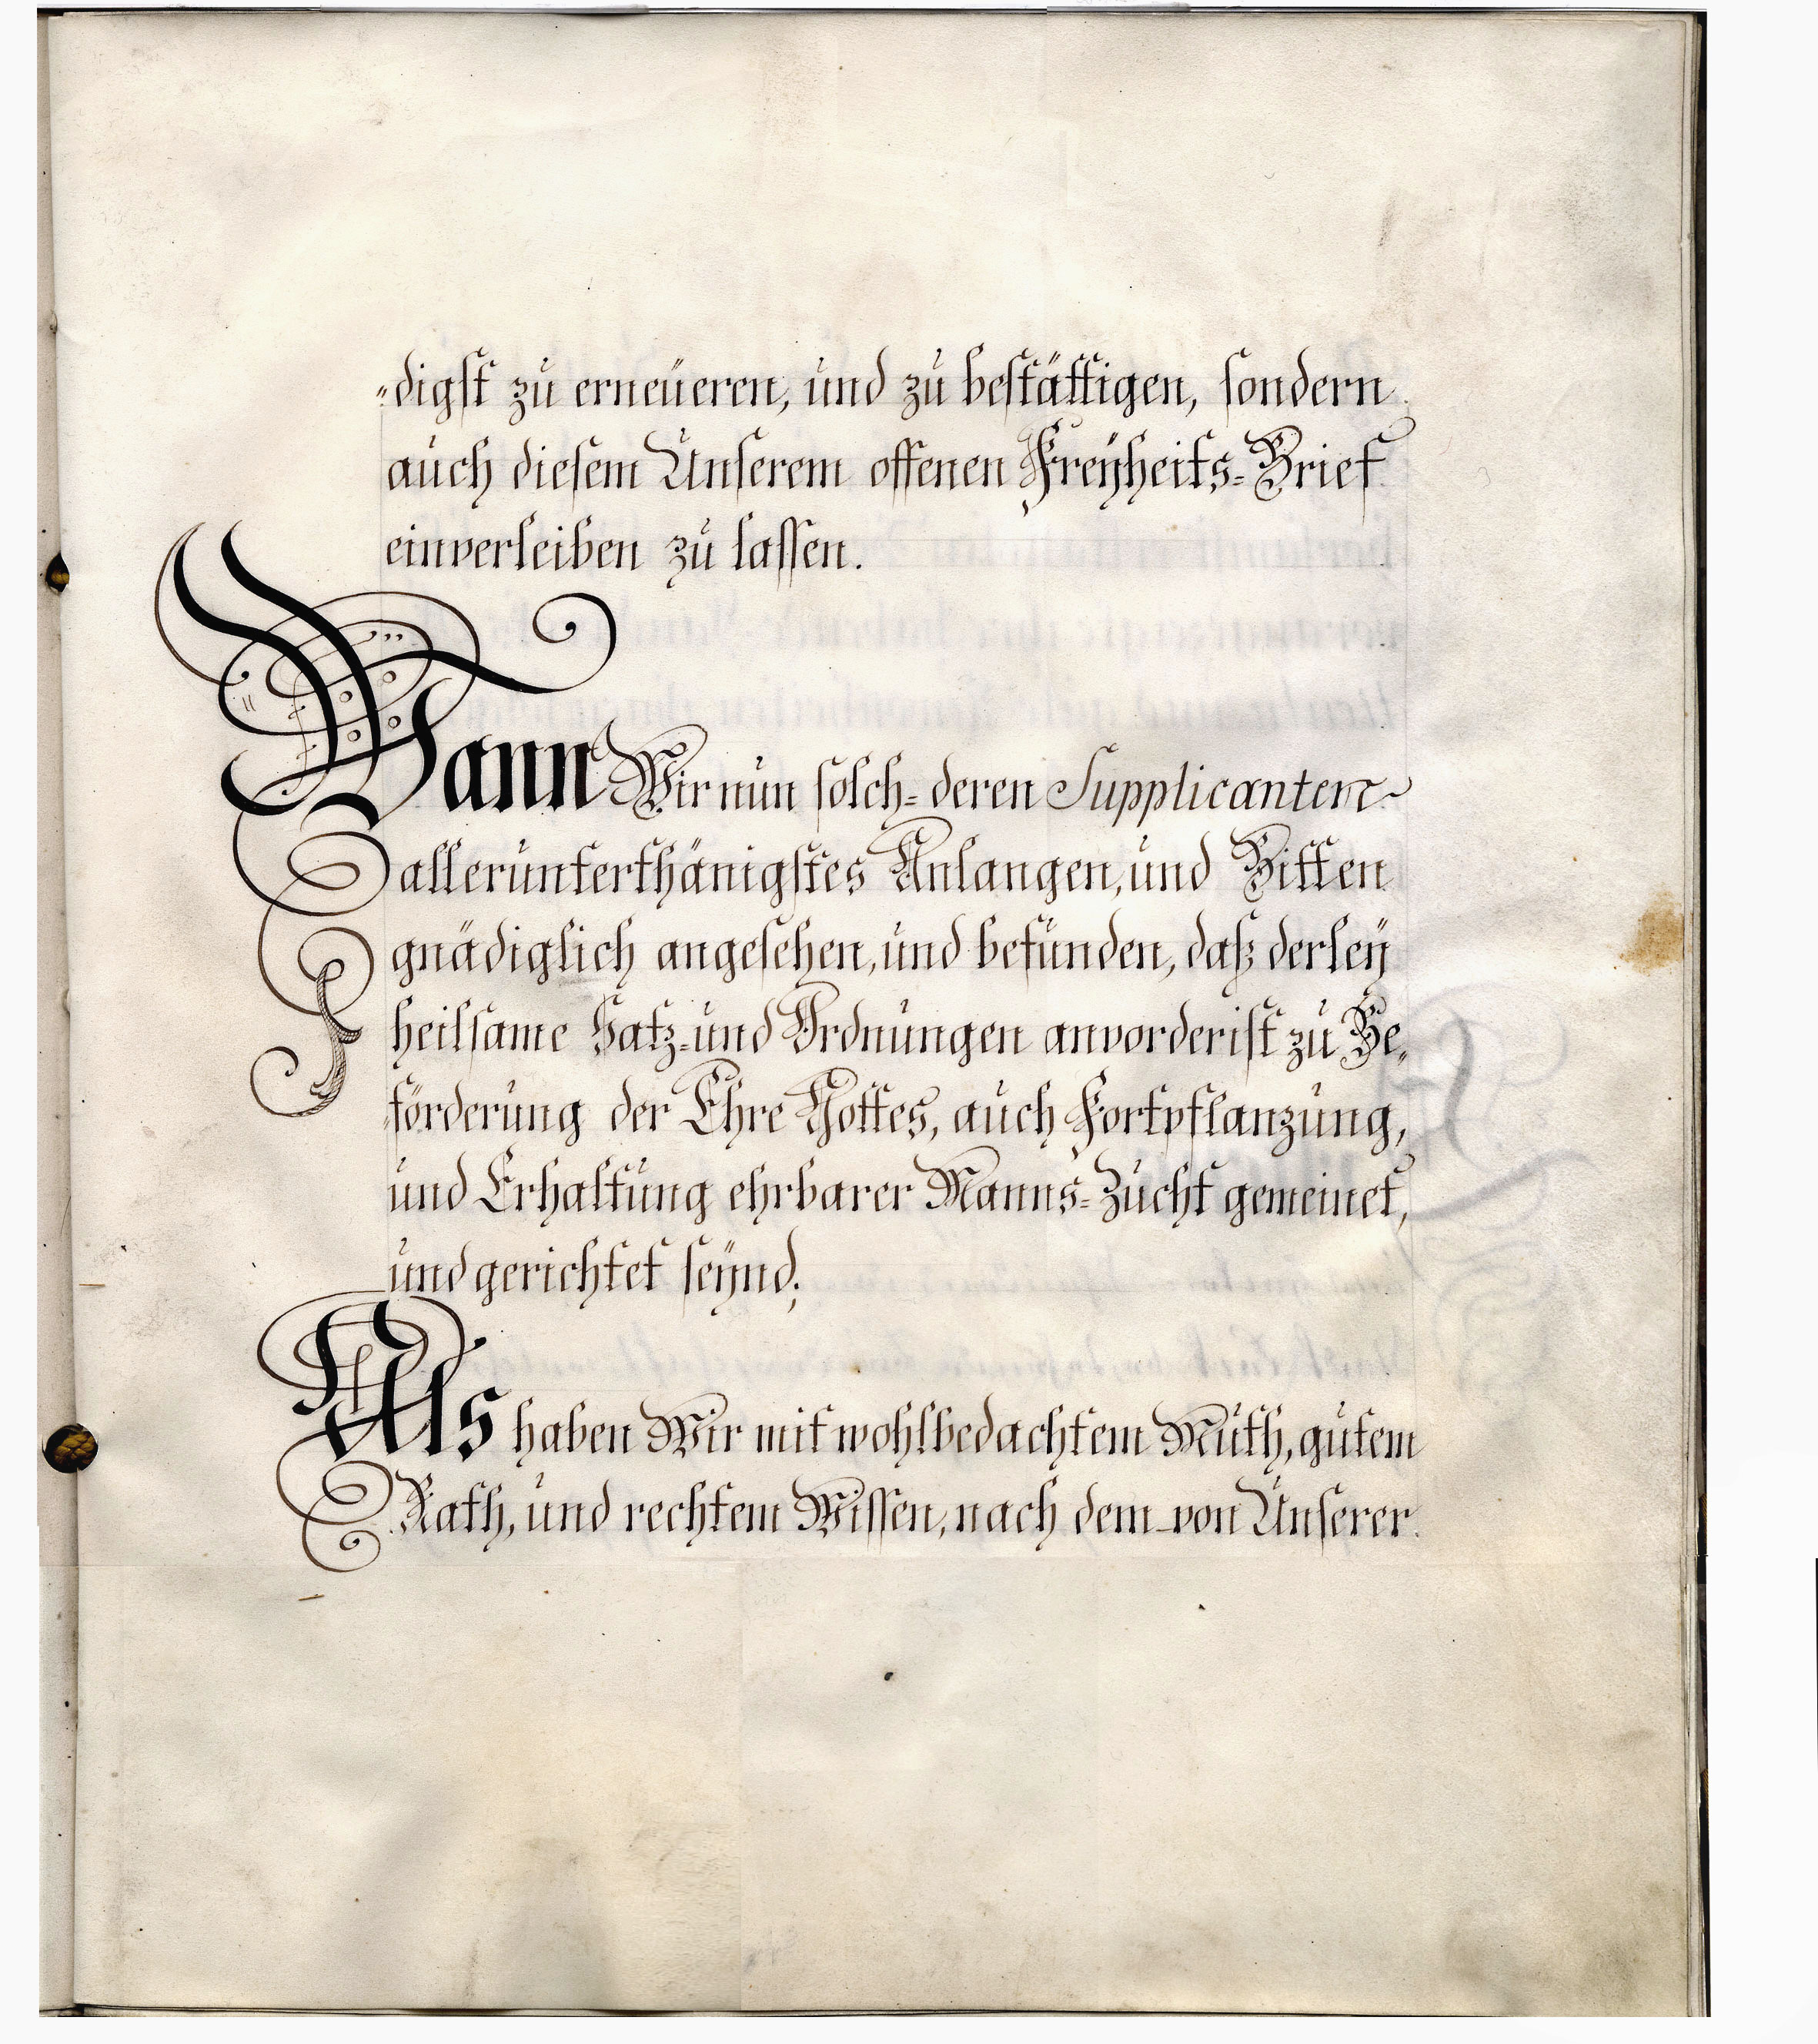 „digst zu erneüeren, und zu bestättigen, sondern
auch diesem Unserem offenen Freÿheits-Brief
einverleiben zu lassen.
Wann Wir nun solch- deren Supplicanten
allerunterthänigstes Anlangen, und Bitten
gnädiglich angesehen, und befunden, daß derleÿ
heilsame Satz- und Ordnungen anvorderist zu Be„
förderung der Ehre Gottes, auch Fortpflanzung,
und Erhaltung ehrbarer Manns-Zucht gemeinet,
und gerichtet seÿnd;
Als haben Wir mit wohlbedachtem Muth, gutem
Rath, und rechtem Wissen, nach dem von Unserer